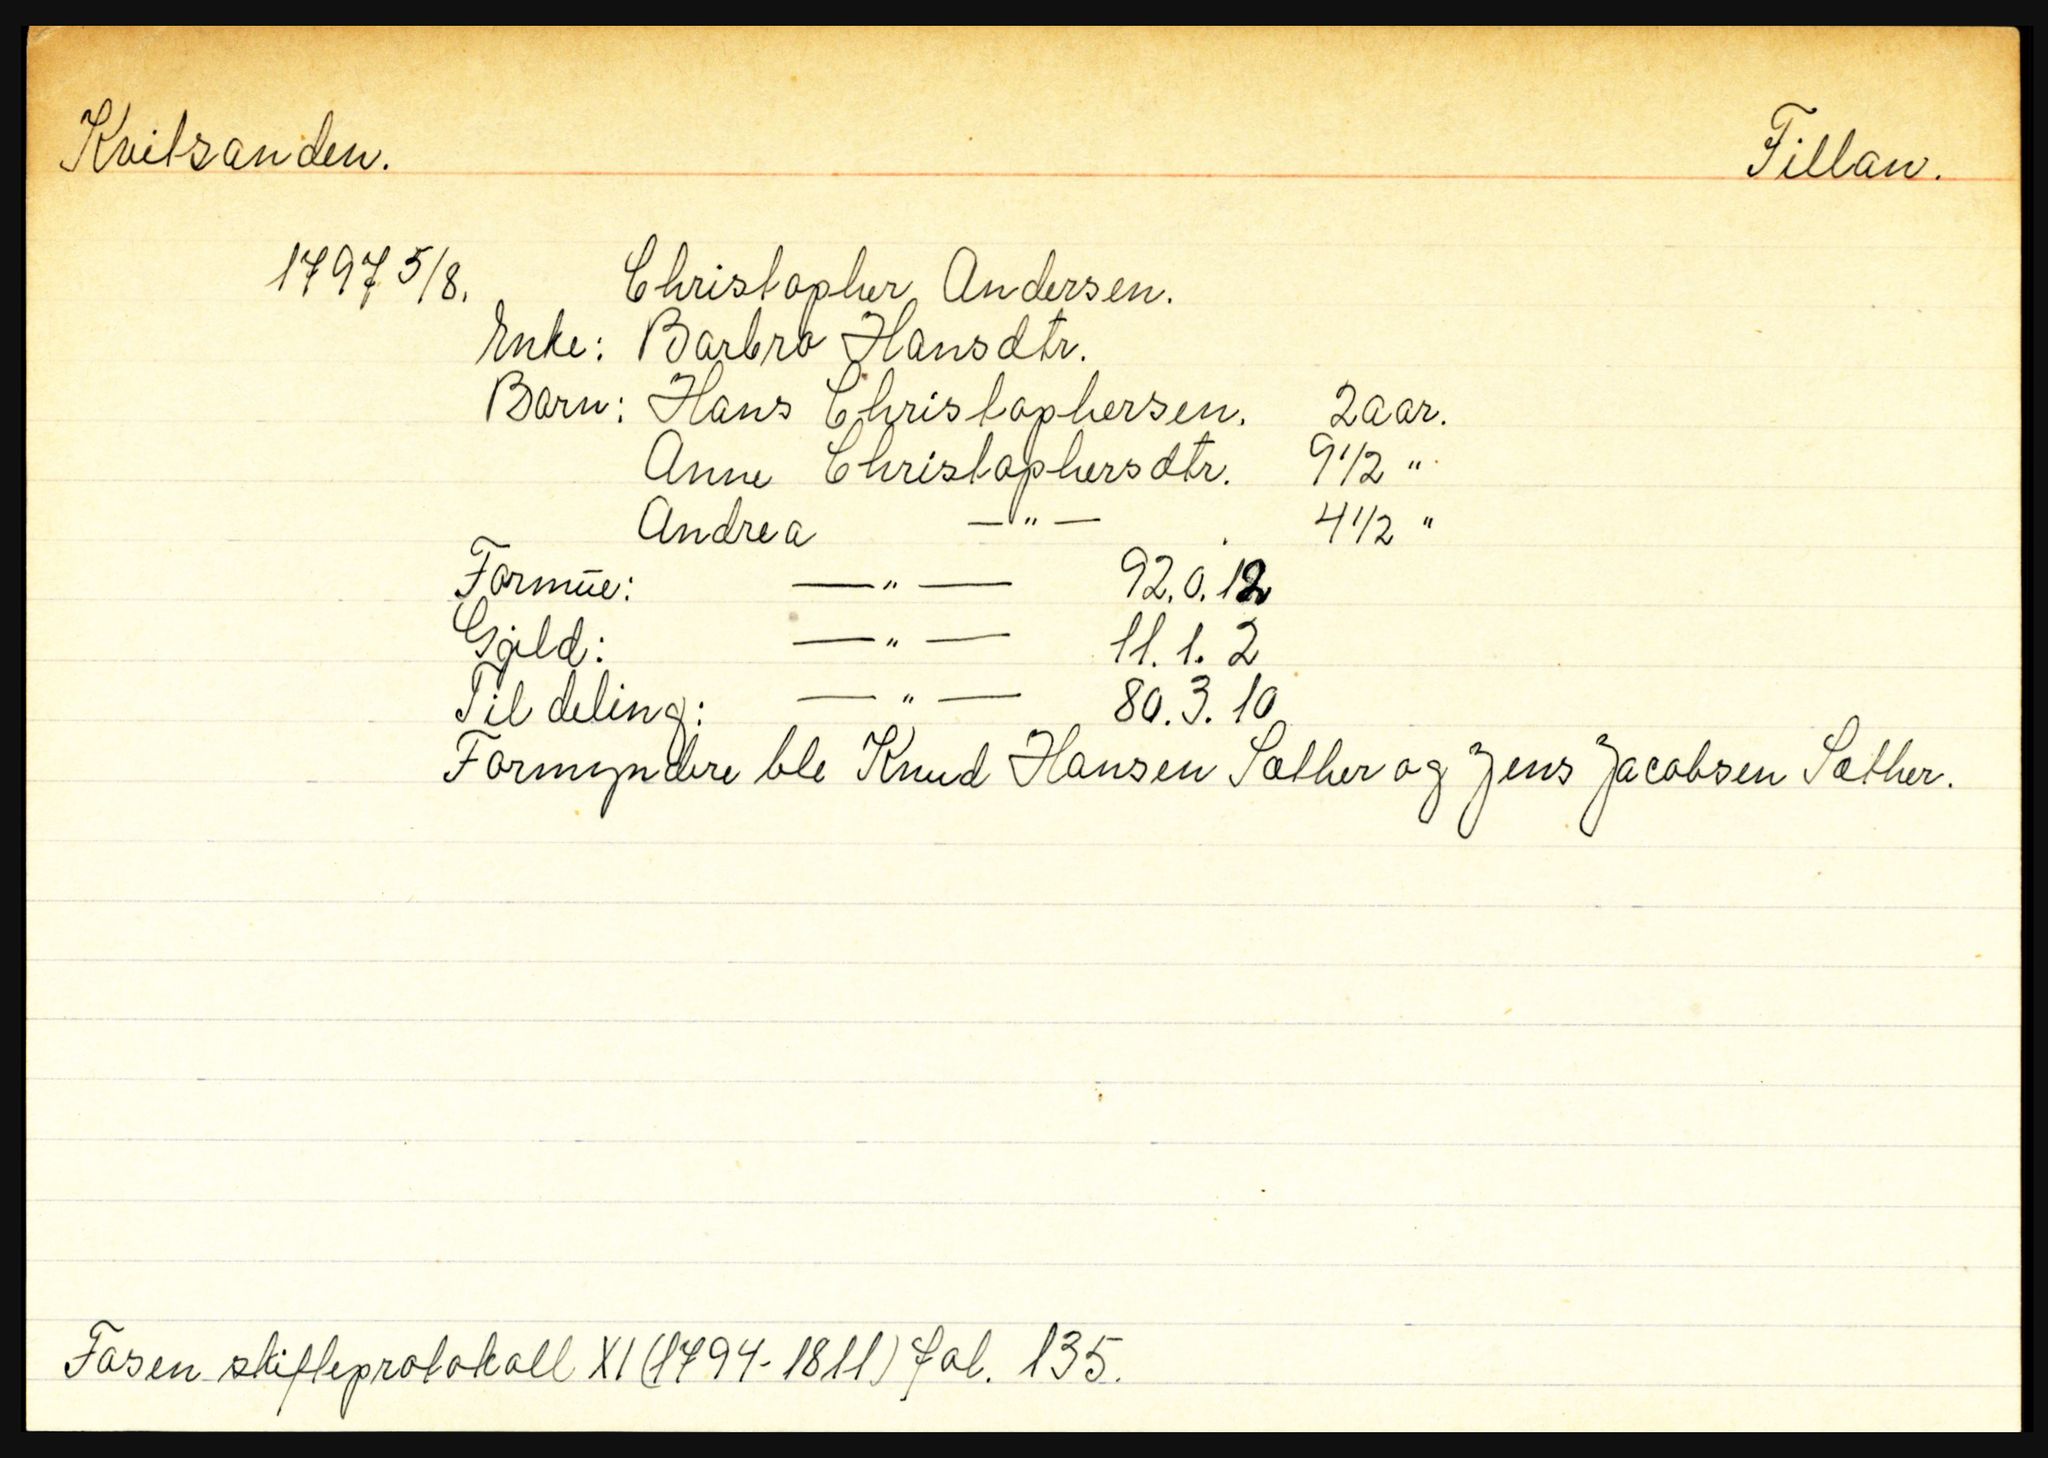 Kvitsanden. Fillan.
1797 5/8. Christopher Andersen.
Enke: Barbro Hansdtr.
Barn: Hans Christophersen. 2 aar.
Anne Christophersdtr. 9 1/2 "
Andrea —"— 4 1/2 "
Formue: —"— 92.0.12
Gjeld: —"— 11.1.2
Til deling: —"— 80.3.10
Formyndere ble Knud Hansen Sæther og Jens Jacobsen Sæther.
Fosen skifteprotokoll XI (1794-1811) fol. 135.